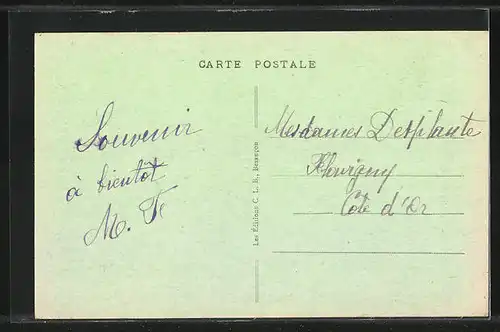 CARTE POSTALE
Souvenir
à bientôt
M. F.
Les Éditions C. L. B., Besançon
Mesdames Desplante
Flavigny
Côte d'Or